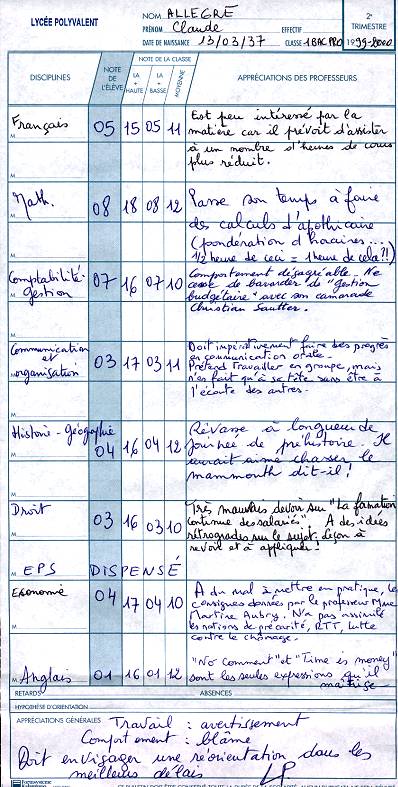 LYCÉE POLYVALENT
NOM ALLEGRE
PRÉNOM Claude EFFECTIF
DATE DE NAISSANCE 13/03/37 CLASSE 1BAC PRO
2e
TRIMESTRE
1999-2000
DISCIPLINES
NOTE DE L'ÉLÈVE
NOTE DE LA CLASSE
LA + HAUTE
LA + BASSE
MOYENNE
APPRÉCIATIONS DES PROFESSEURS
Français 05 15 05 11
Est peu intéressé par la
matière car il prévoit d'assister
à un nombre d'heures de cours
plus réduit.
M
Math. 08 18 08 12
Passe son temps à faire
des calculs d'apothicaire
(pondération d'horaires...
1/2 heure de ceci = 1 heure de cela?!)
M
Comptabilité
gestion 07 16 07 10
Comportement désagréable. Ne
cesse de bavarder de "gestion
budgétaire" avec son camarade
Christian Sautter.
M
Communication
et
organisation 03 17 03 11
Doit impérativement faire des progrès
en communication orale.
Prétend Travailler en groupe, mais
n'en fait qu'à sa tête sans être à
l'écoute des autres.
M
Histoire-Géographie
04 16 04 12
Rêvasse à longueur de
journée de préhistoire. Il
aurait aimé chasser le
mammouth dit-il!
M
Droit 03 16 03 10
Très mauvais devoir sur "La formation
continue des salariés". A des idées
rétrogrades sur le sujet. Leçon à
revoir et à appliquer!
M EPS DISPENSÉ
Economie 04 17 04 10
A du mal à mettre en pratique, les
consignes données par le professeur Mme
Martine Aubry. N'a pas assimilé
les notions de précarité, RTT, lutte
contre le chômage.
M Anglais 01 16 01 12
"No Comment" et "Time is money"
sont les seules expressions qu'il
maîtrise
RETARDS ABSENCES
HYPOTHÈSE D'ORIENTATION
APPRÉCIATIONS GÉNÉRALES
Travail : avertissement
Comportement : blâme
Doit envisager une réorientation dans les
meilleurs délais